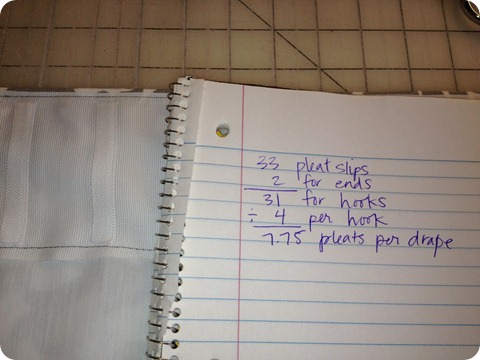 33 pleat slips
2 for ends
31 for hooks
÷ 4 per hook
7.75 pleats per drape